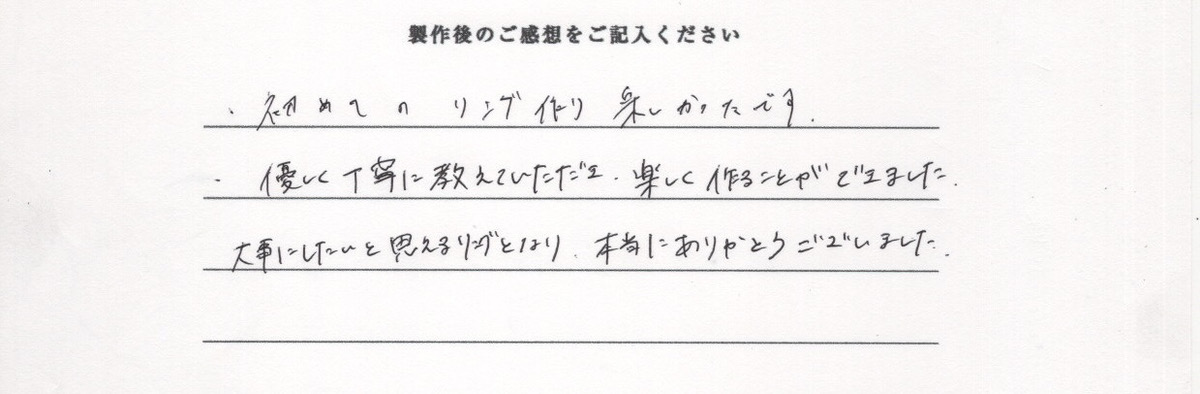 製作後のご感想をご記入ください
・初めてのリング作り楽しかったです.
・優しく丁寧に教えていただき、楽しく作ることができました.
大事にしたいと思えるリングとなり、本当にありがとうございました.